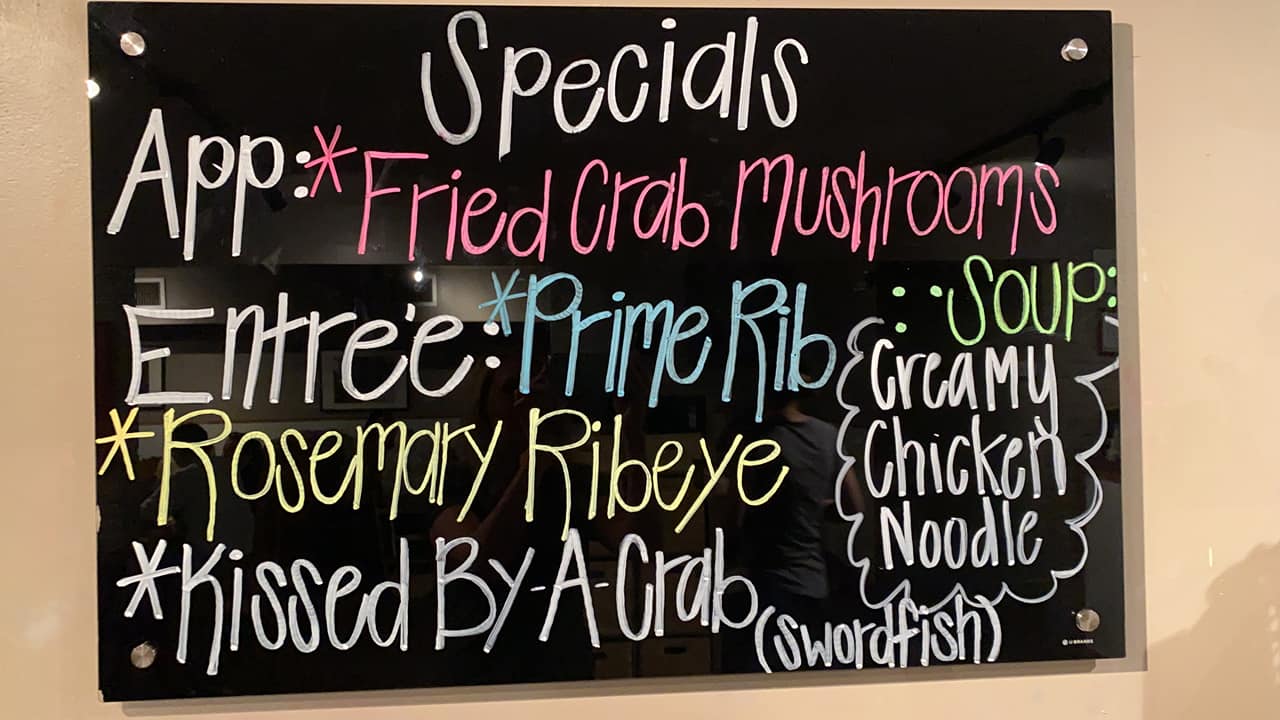 Specials
App: *Fried Crab Mushrooms
Entreé: *Prime Rib
*Rosemary Ribeye
*Kissed By-A-Crab
(swordfish)
: •Soup:
Creamy
Chicken
Noodle
U BRANDS